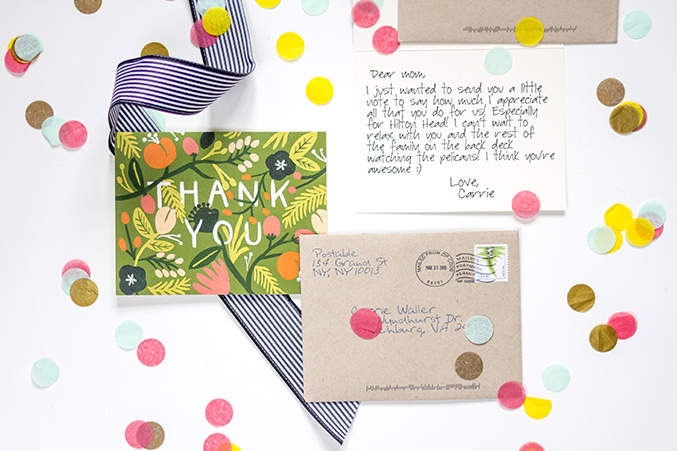 Dear mom,
I just wanted to send you a little
note to say how much I appreciate
all that you do for us! Especially
for Hilton Head! I can't wait to
relax with you and the rest of
the family on the back deck
watching the pelicans! I think you're
awesome :)
Love,
Carrie
THANK
YOU
Postable
134 Grand St
NY, NY 10013
MAILED FROM ZIP CODE
MAR 27 2015
Waller
Dr.
VA